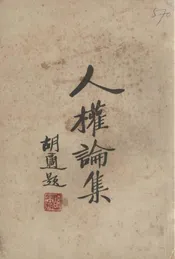 人權論集
胡適題
570